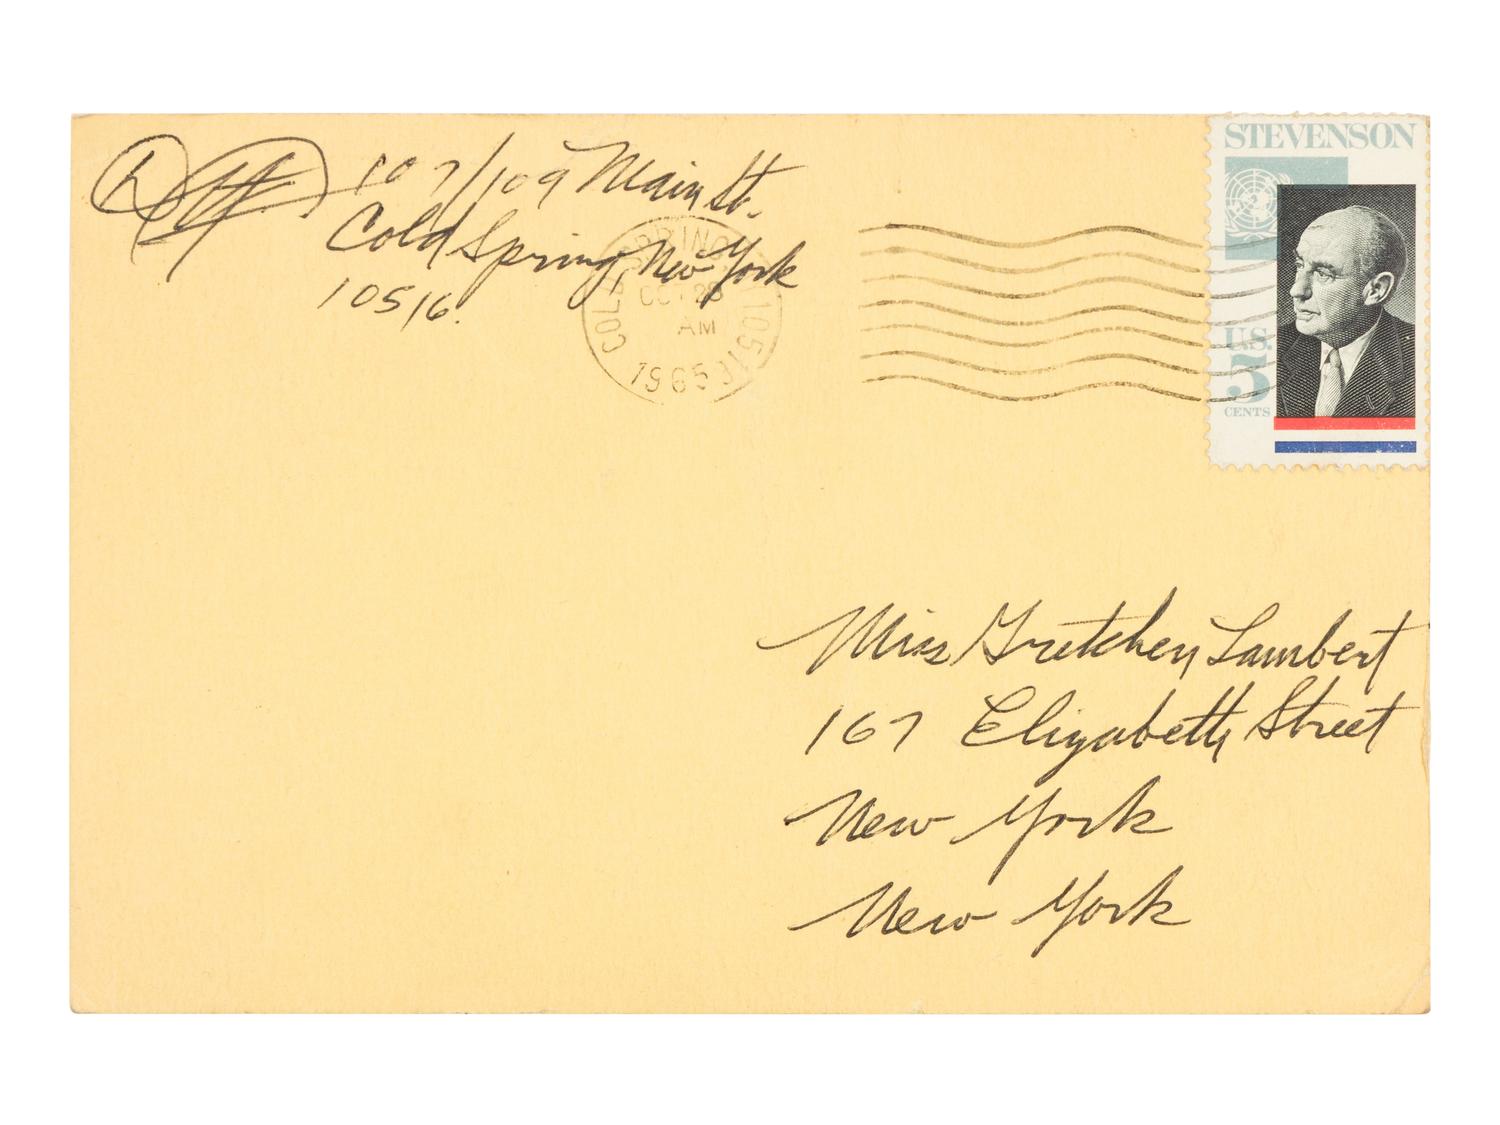 107/109 Main St.
Cold Spring New York
10516.
COLD SPRING, N.Y. 10516
OCT 28
AM
1965
STEVENSON
U.S.
5
CENTS
Miss Gretchen Lambert
167 Elizabeth Street
New York
New York